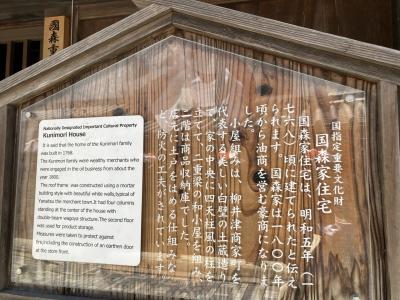 国森家
国指定重要文化財
国森家住宅
国森家住宅は、明和五年(一
七六八)頃に建てられたと伝え
られます。国森家は一八〇〇年
頃から油商を営む豪商になりま
した。
小屋組みは、柳井津商家町を
代表する美しい白壁の土蔵造り
で、家の中央に四天柱風の柱を
立てて、二重梁の和小屋を組み、
二階は商品収納庫でした。
店先に土戸をはめる仕組みな
ど、防火の工夫がされています。
Nationally Designated Important Cultural Property
Kunimori House
It is said that the home of the Kunimori family
was built in 1768.
The Kunimori family were wealthy merchants who
were engaged in the oil business from about the
year 1800.
The roof frame was constructed using a mortar
building style with beautiful white walls, typical of
Yanaitsu the merchant town. It had four columns
standing at the center of the house with
double-beam wagoya structure. The second floor
was used for product storage.
Measures were taken to protect against
fire, including the construction of an earthen door
at the store front.